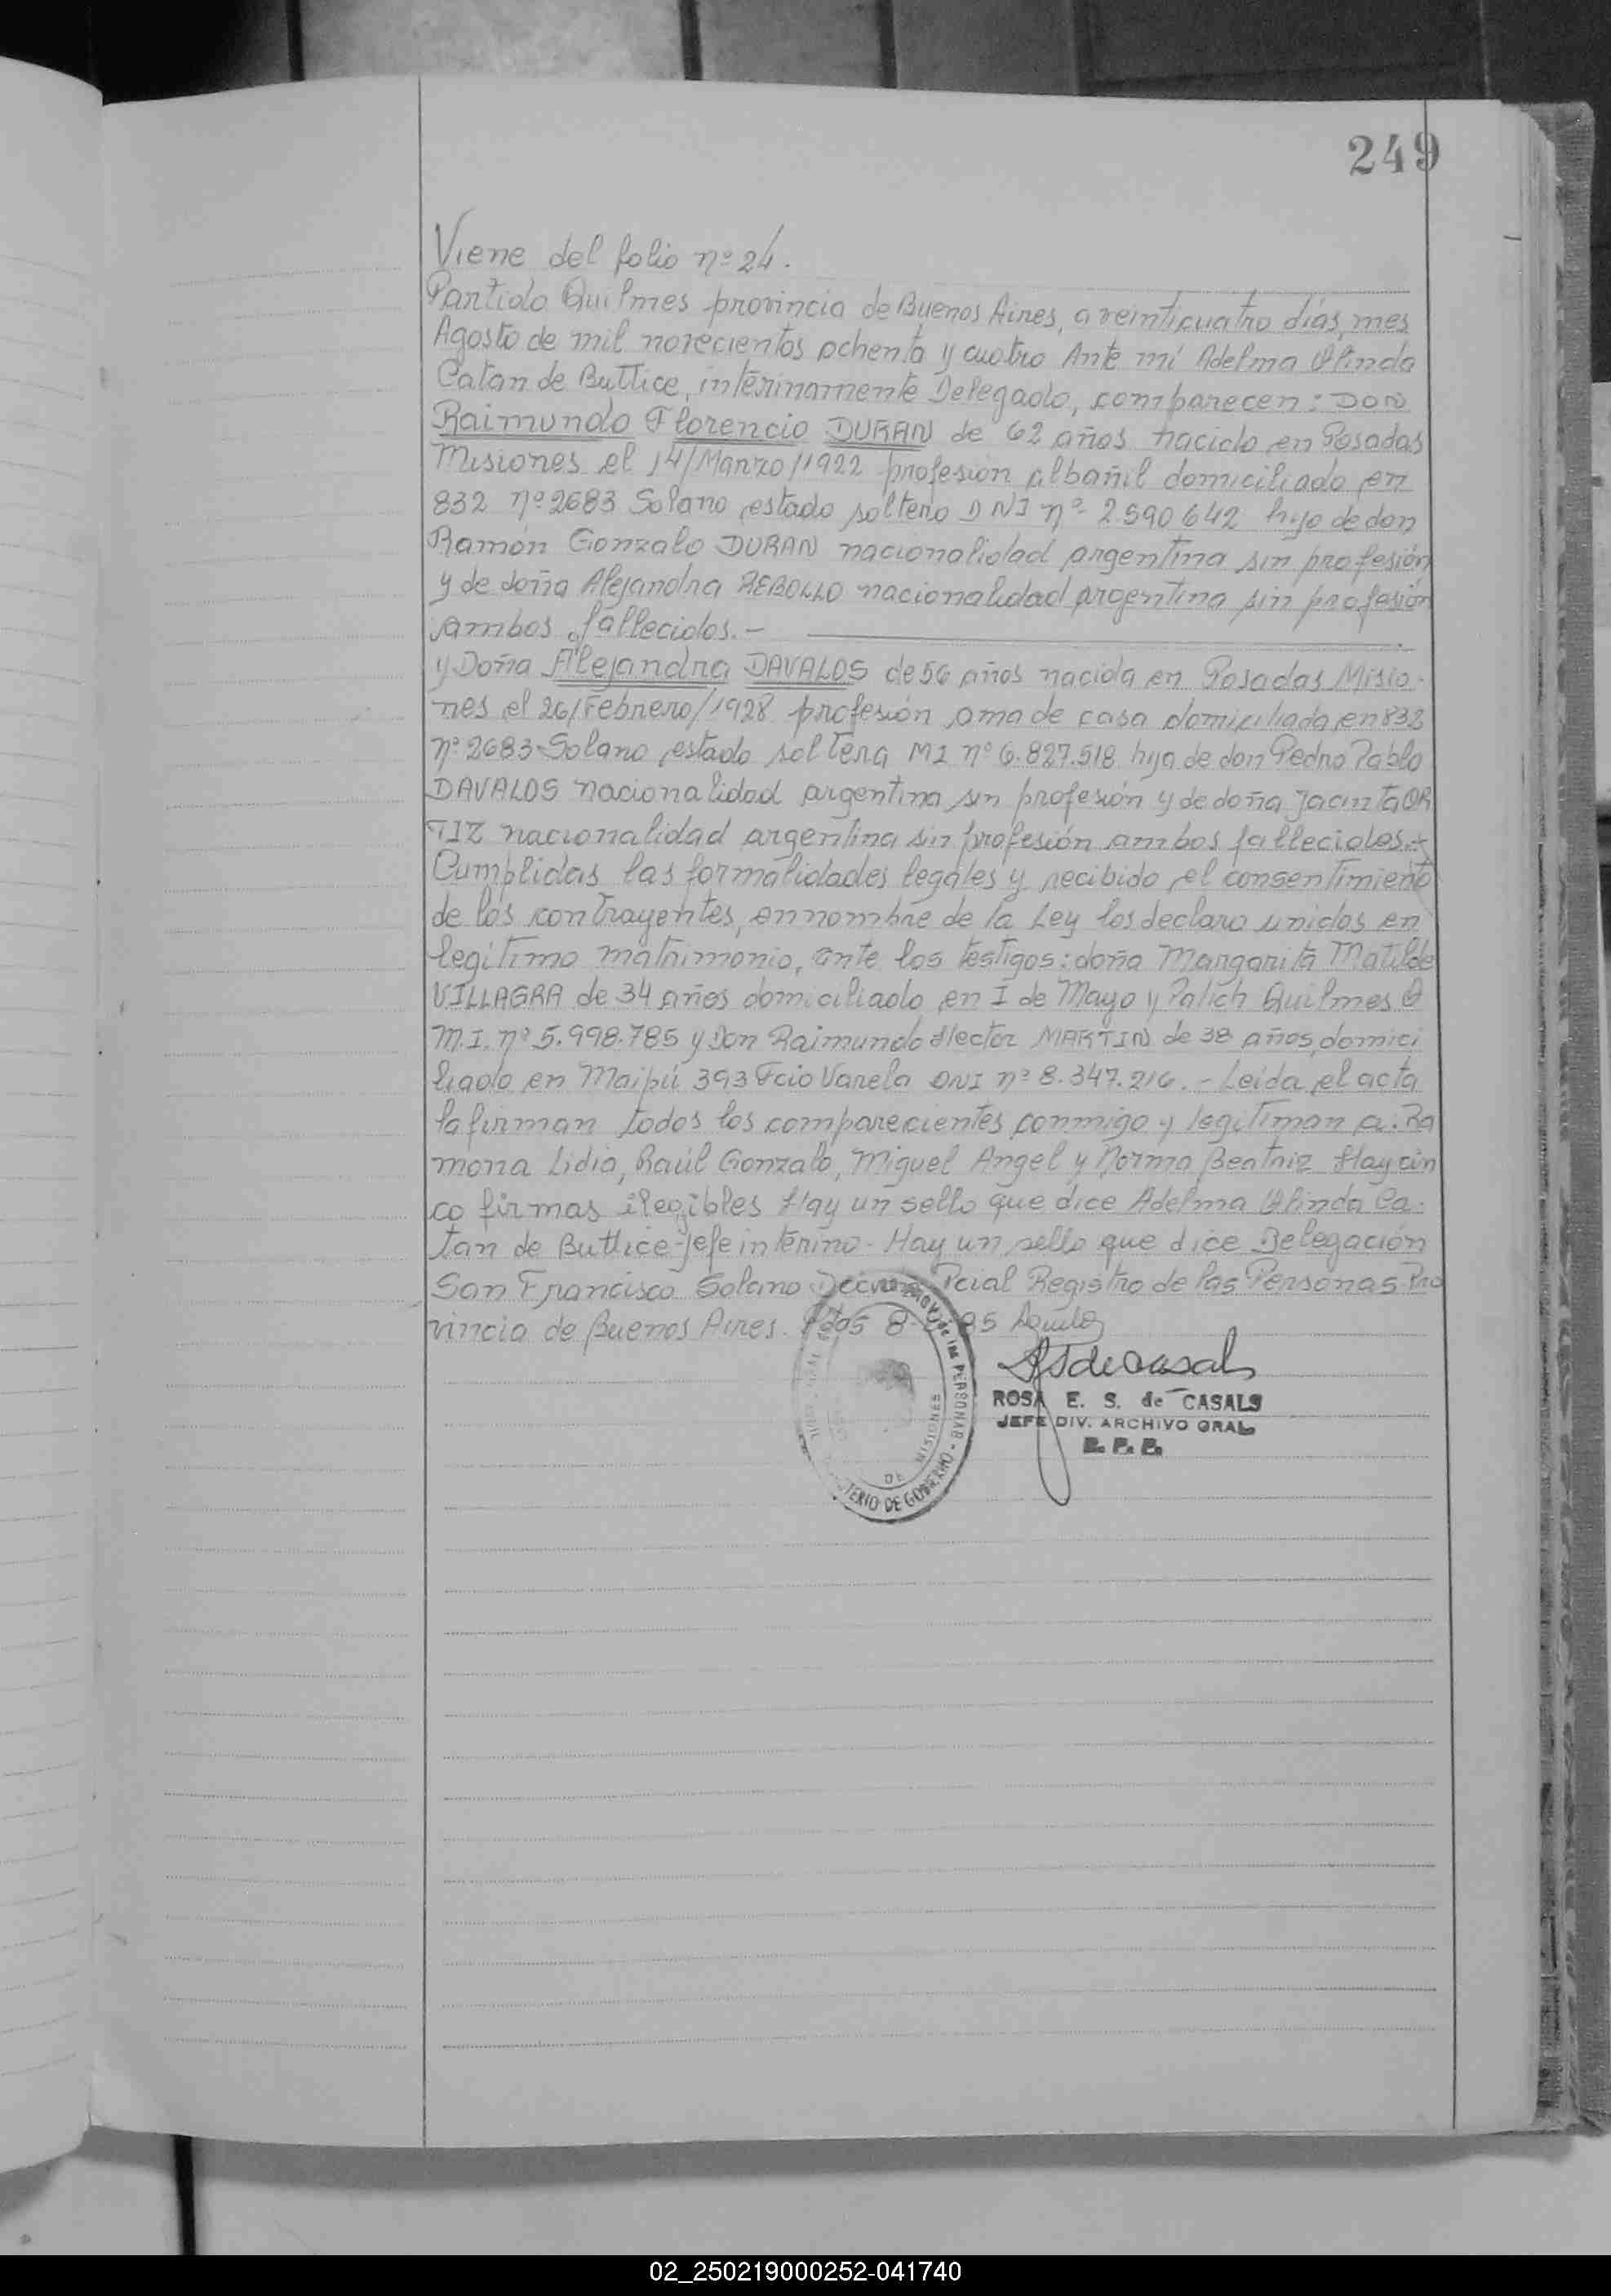 249
Viene del folio nº 24.
Partido Quilmes provincia de Buenos Aires, a veinticuatro días, mes
Agosto de mil novecientos ochenta y cuatro Ante mí Adelma Olinda
Catan de Buttice, interinamente Delegado, comparecen: DON
Raimundo Florencio DURAN de 62 años nacido en Posadas
Misiones el 14/Marzo/1922 profesión albañil domiciliado en
832 nº 2683 Solano estado soltero DNI nº 2.590642 hijo de don
Ramón Gonzalo DURAN nacionalidad argentina sin profesión
y de doña Alejandra REBOLLO nacionalidad argentina sin profesión
ambos fallecidos.-
y Doña Alejandra DAVALOS de 56 años nacida en Posadas Misio-
nes el 26/Febrero/1928 profesión ama de casa domiciliada en 832
nº 2683 Solano estado soltera MI nº 6.827.518 hija de don Pedro Pablo
DAVALOS nacionalidad argentina sin profesión y de doña Jacinta OR
TIZ nacionalidad argentina sin profesión ambos fallecidos.-
Cumplidas las formalidades legales y recibido el consentimiento
de los contrayentes, en nombre de la Ley los declaro unidos en
legítimo matrimonio, ante los testigos: doña Margarita Matilde
VILLAGRA de 34 años domiciliado en I de Mayo y Palich Quilmes O
M.I. nº 5.998.785 y Don Raimundo Hector MARTIN de 38 años, domici
liado en Maipú 393 Fcio Varela DNI nº 8.347.216.- Leída el acta
la firman todos los comparecientes conmigo y legitiman a: Ra
mona Lidia, Raúl Gonzalo, Miguel Angel y Norma Beatriz Hay cin
co firmas ilegibles Hay un sello que dice Adelma Olinda Ca-
tan de Buttice-Jefe interino- Hay un sello que dice Delegación
San Francisco Solano Pcial Registro de las Personas Pro
vincia de Buenos Aires. Pdas 8- 85
ROSA E. S. de CASALS
JEFE DIV. ARCHIVO GRAL
R. P. P.
de las PERSONAS
TERIO DE GOBIERNO
DE MISIONES
02_250219000252-041740